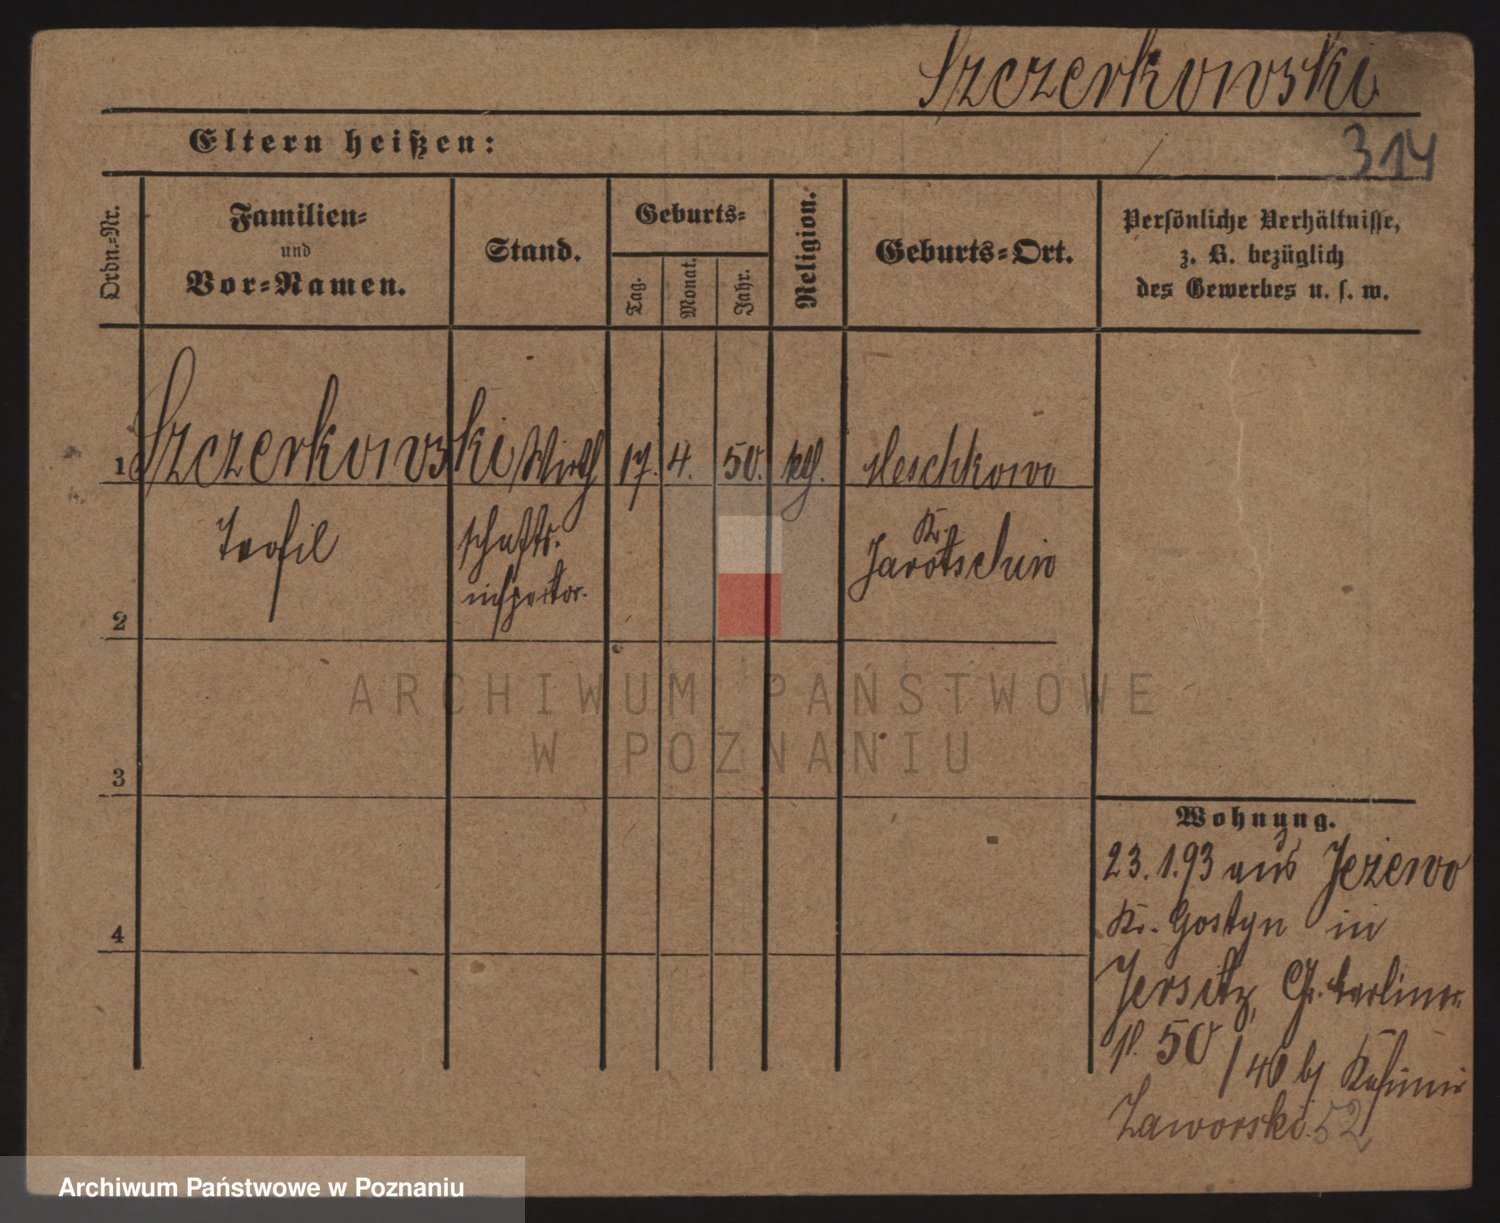 Szczerkowski
Eltern heißen:
314
Ordn.-Nr.
Familien-
und
Vor-Namen.
Stand.
Geburts-
Tag.
Monat.
Jahr.
Religion.
Geburts-Ort.
Persönliche Verhältnisse,
z. B. bezüglich
des Gewerbes u. s. w.
1 Szczerkowski Wirth 17. 4. 50. kth. Meschkowo
Teofil schafts- Kr.
inspector. Jarotschin
2
3
4
ARCHIWUM PAŃSTWOWE
W POZNANIU
Wohnung.
23.1.93 aus Jeżewo
Kr. Gostyn in
Jersitz, Gr. Berliner
50 / 46 bei Kasimir
Zaworski. 52
Archiwum Państwowe w Poznaniu